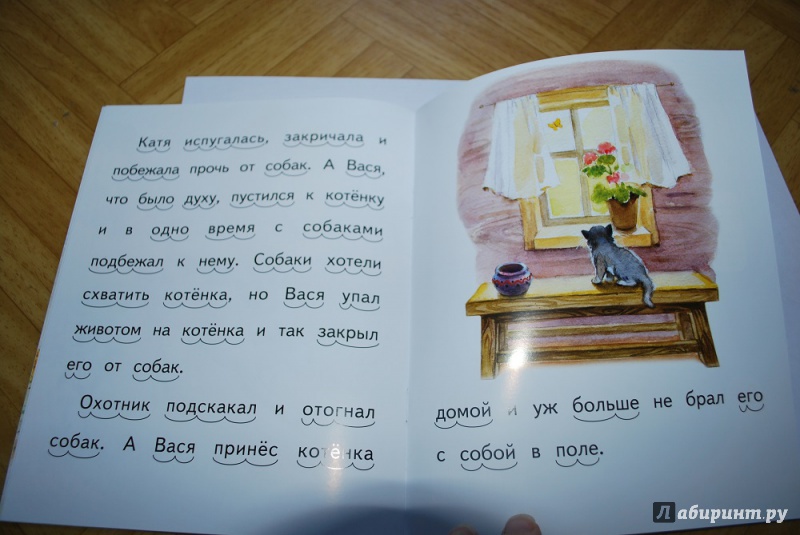 Катя испугалась, закричала и
побежала прочь от собак. А Вася,
что было духу, пустился к котёнку
и в одно время с собаками
подбежал к нему. Собаки хотели
схватить котёнка, но Вася упал
животом на котёнка и так закрыл
его от собак.
Охотник подскакал и отогнал
собак. А Вася принёс котёнка
домой и уж больше не брал его
с собой в поле.
Лабиринт.ру